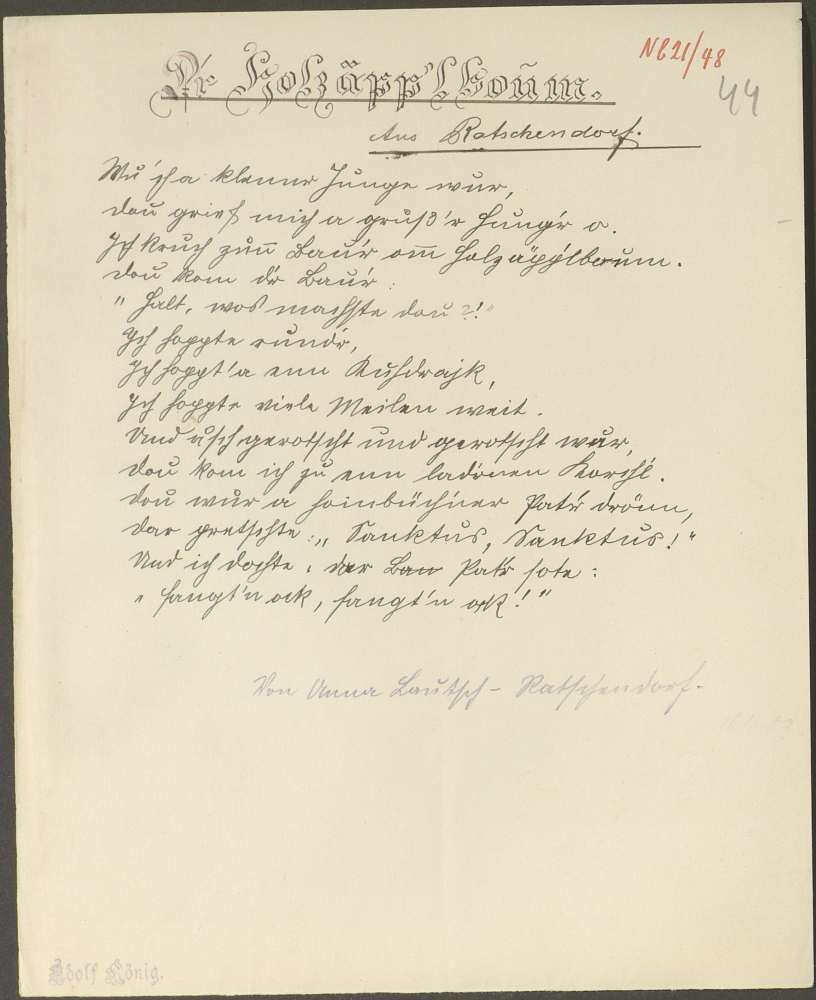 NB21/48
44
Dr Holzäpp'lboum.
Aus Ratschendorf.
Wu 'ch a klenner Junge wur,
dou grief mich a gruß'r Hung'r o.
Ich kruch zun Bau'r om Holzäpp'lboum.
Dou kom d'r Bau'r:
"Halt, wos machste dou?!"
Ich hoppte rund'r,
Ich hoppt'a enn Kuhdrajk,
Ich hoppte viele Meilen weit.
Und u'ch gerotscht und gerotscht wur,
Dou kom ich zu enn lad'rnen Korchl.
Dou wur a hoinbüch'ner Pat'r dröinn,
Dar pretschte: "Sanktus, Sanktus!"
Und ich dochte, dar Pat'r sote:
"Fangt'n ock, fangt'n ock!"
Von Anna Lautsch - Ratschendorf.
Adolf König.